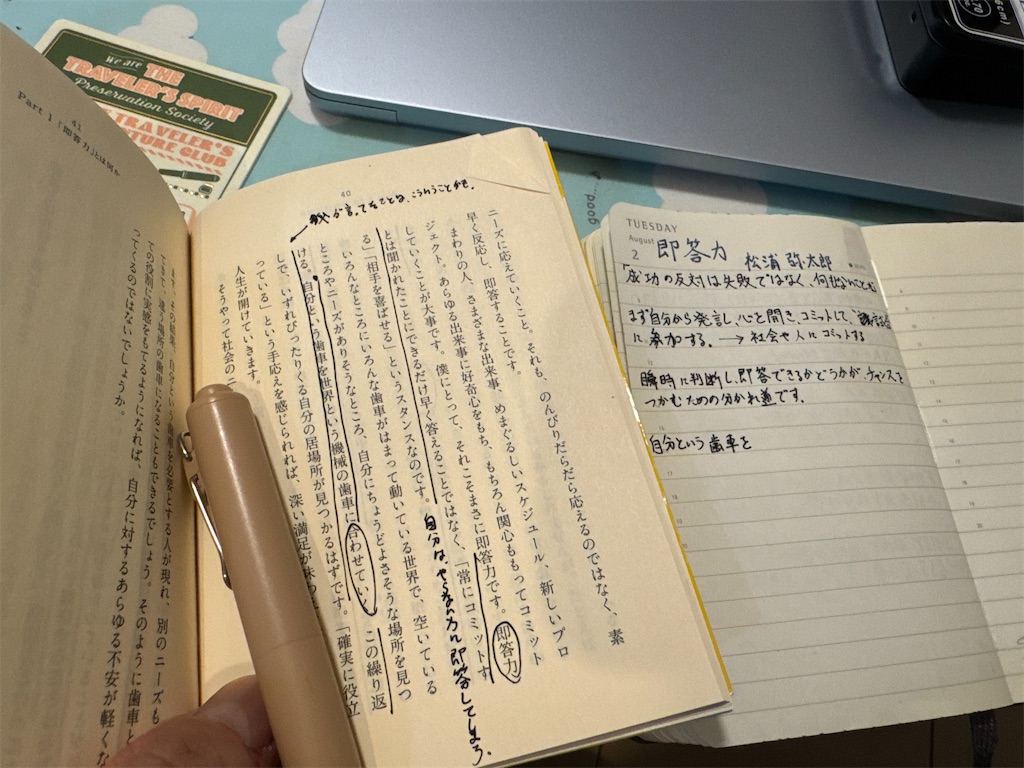 We are THE
TRAVELER'S SPIRIT
Preservation Society
TRAVELER'S
CLUB
41
Part 1 「即答力」とは何か
ての役割で実感をもてるようになれば、自分に対するあらゆる不安が軽くな
ってくるのではないでしょうか。
40
ニーズに応えていくこと。それも、のんびりだらだら応えるのではなく、素
早く反応し、即答することです。
まわりの人、さまざまな出来事、めまぐるしいスケジュール、新しいプロ
ジェクト。あらゆる出来事に好奇心をもち、もちろん関心ももってコミット
していくことが大事です。僕にとって、それこそまさに即答力です。即答力
とは聞かれたことにできるだけ早く答えることではなく、「常にコミットす
る」「相手を喜ばせる」というスタンスなのです。
自分は、やらない方に即答してしまう。
いろんなところにいろんな歯車がはまって動いている世界で、空いている
ところやニーズがありそうなところ、自分にちょうどよさそうな場所を見つ
ける。自分という歯車を世界という機械の歯車に合わせていく。この繰り返
しで、いずれぴったりくる自分の居場所が見つかるはずです。「確実に役立
っている」という手応えを感じられれば、深い満足が味わ
人生が開けていきます。
そうやって社会のニ
TUESDAY
August
2
即答力 松浦弥太郎
「成功の反対は失敗ではなく、何もしないこと
まず自分から発言し、心を開き、コミットして、
に参加する。→社会や人にコミットする
瞬時に判断し、即答できるかどうかが、チャンスを
つかむための分かれ道です。
自分という歯車を